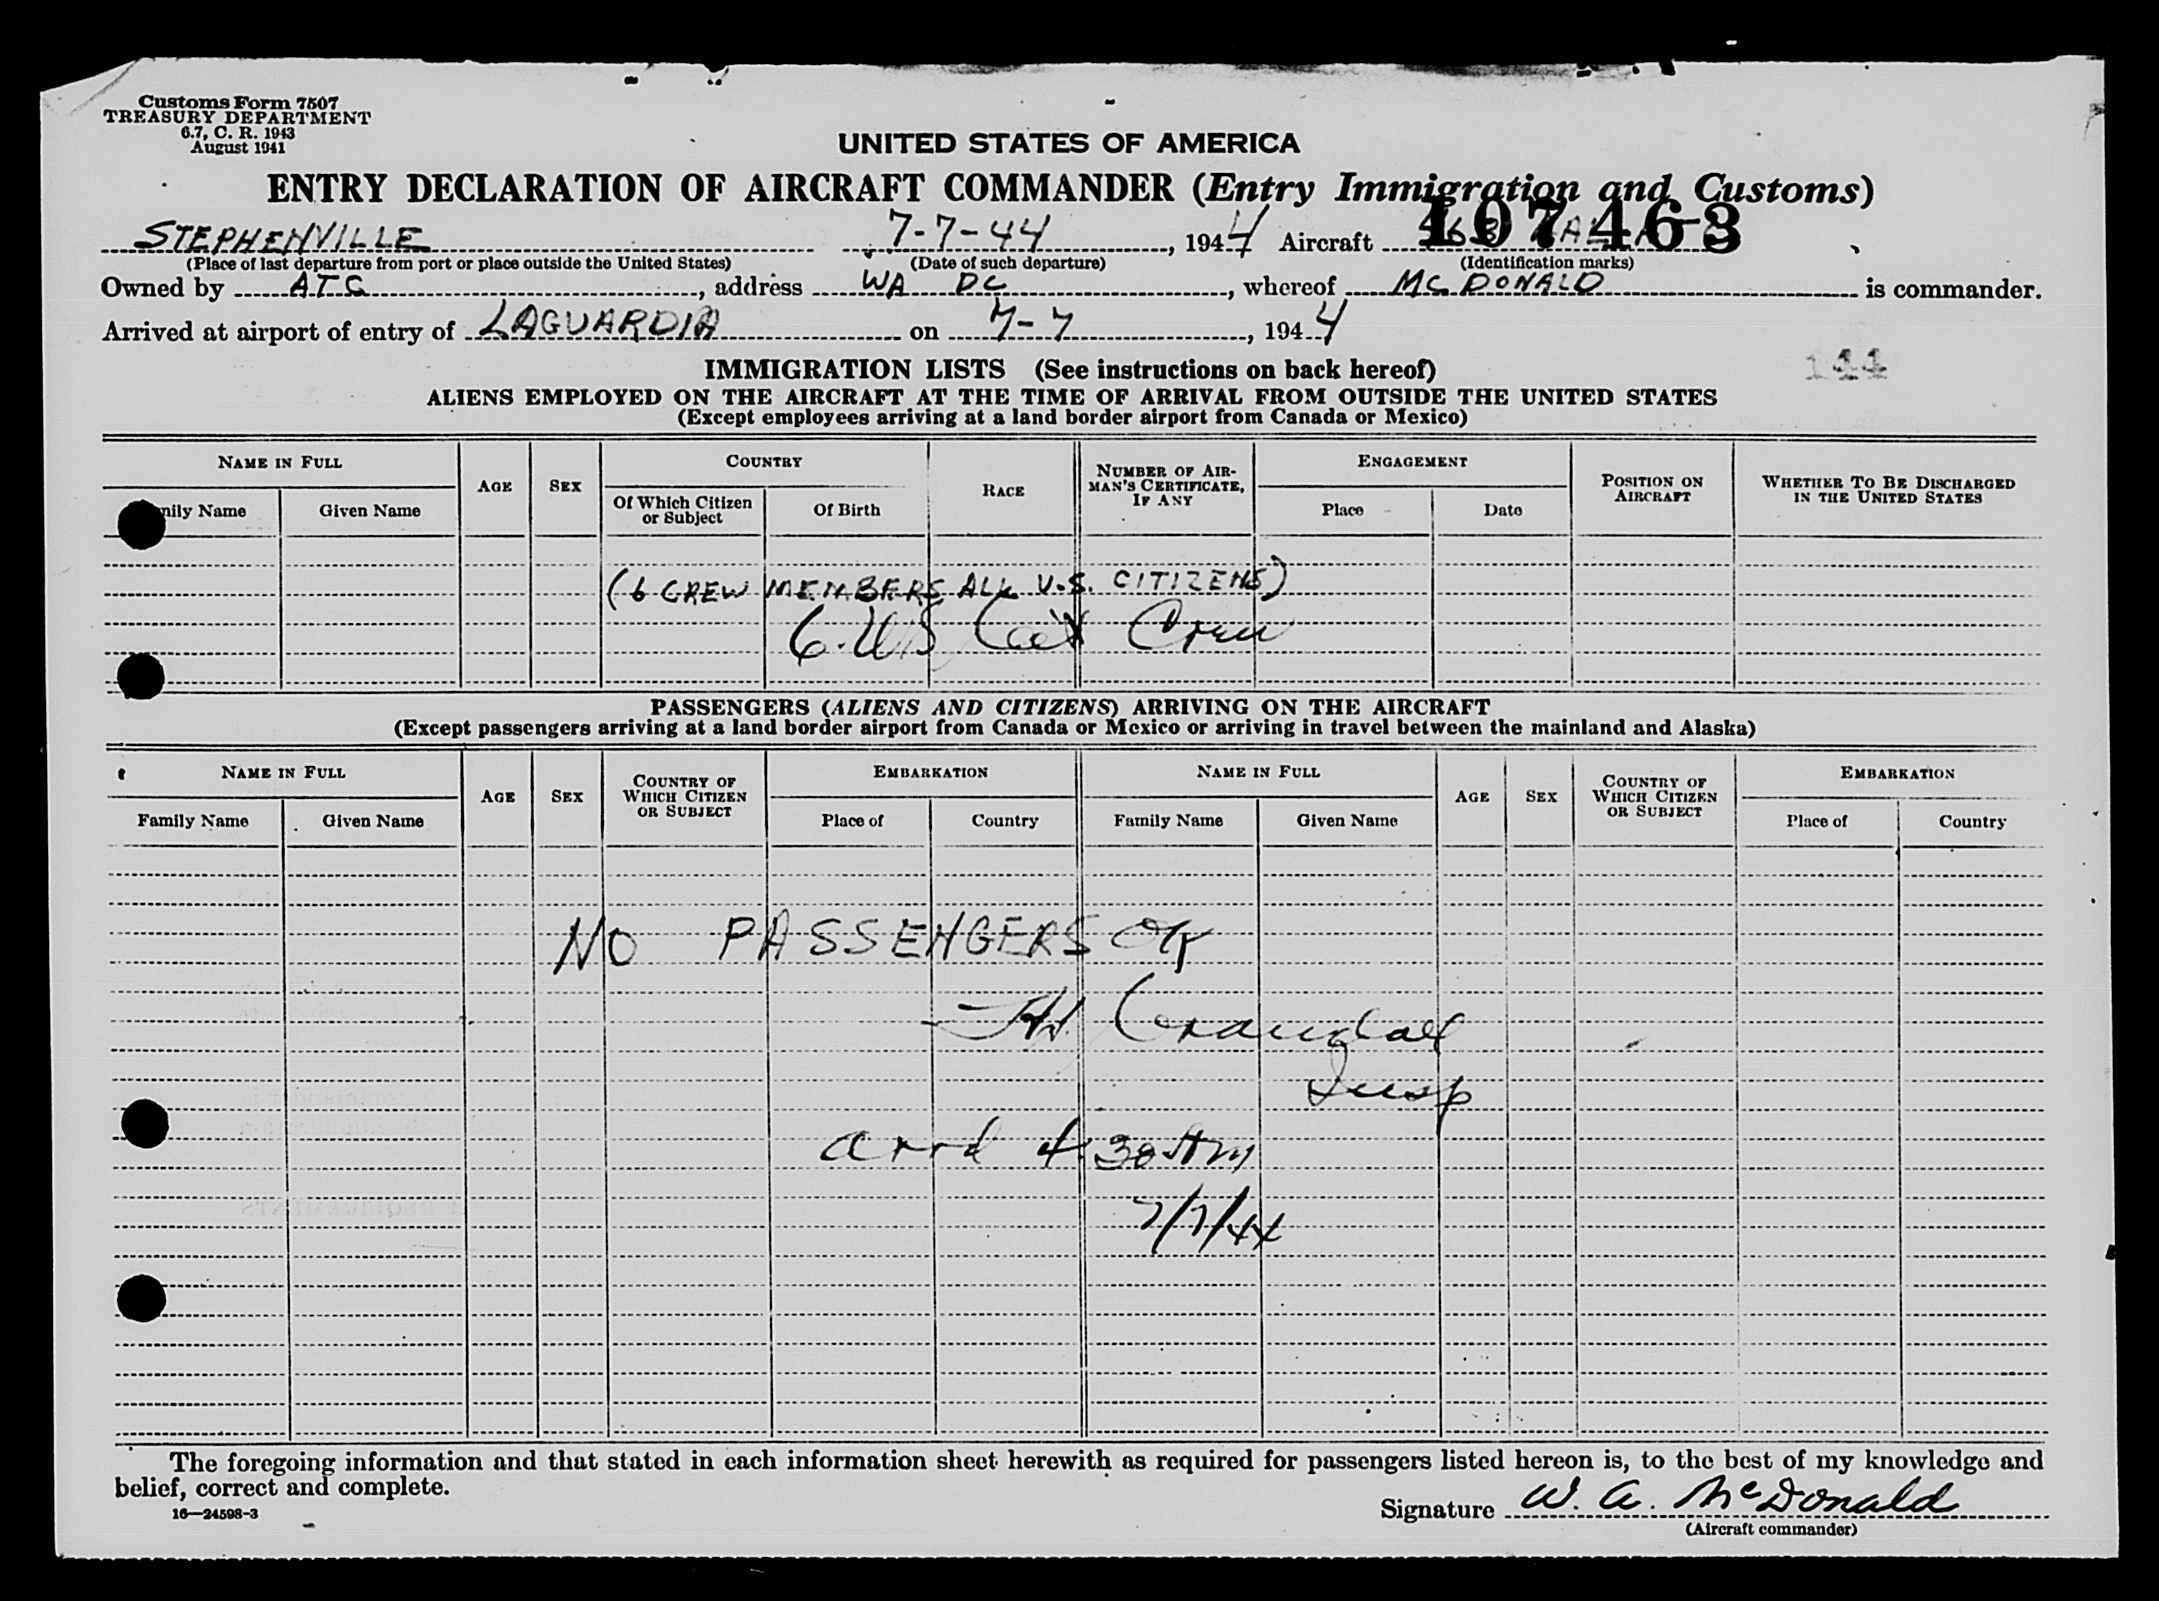 Customs Form 7507
TREASURY DEPARTMENT
6.7, C. R. 1943
August 1941
UNITED STATES OF AMERICA
ENTRY DECLARATION OF AIRCRAFT COMMANDER (Entry Immigration and Customs)
107463
STEPHENVILLE 7-7-44, 1944 Aircraft
(Place of last departure from port or place outside the United States) (Date of such departure) (Identification marks)
Owned by ATC, address WA DC, whereof MCDONALD is commander.
Arrived at airport of entry of LAGUARDIA on 7-7, 1944
IMMIGRATION LISTS (See instructions on back hereof)
144
ALIENS EMPLOYED ON THE AIRCRAFT AT THE TIME OF ARRIVAL FROM OUTSIDE THE UNITED STATES
(Except employees arriving at a land border airport from Canada or Mexico)
NAME IN FULL AGE SEX COUNTRY RACE NUMBER OF AIRMAN'S CERTIFICATE, IF ANY ENGAGEMENT POSITION ON AIRCRAFT WHETHER TO BE DISCHARGED IN THE UNITED STATES
mily Name Given Name Of Which Citizen or Subject Of Birth Place Date
(6 CREW MEMBERS ALL U.S. CITIZENS)
6. US Crew
PASSENGERS (ALIENS AND CITIZENS) ARRIVING ON THE AIRCRAFT
(Except passengers arriving at a land border airport from Canada or Mexico or arriving in travel between the mainland and Alaska)
NAME IN FULL AGE SEX COUNTRY OF WHICH CITIZEN OR SUBJECT EMBARKATION NAME IN FULL AGE SEX COUNTRY OF WHICH CITIZEN OR SUBJECT EMBARKATION
Family Name Given Name Place of Country Family Name Given Name Place of Country
NO PASSENGERS OK
Crandall
Insp
arrd 4:30 AM
7/7/44
The foregoing information and that stated in each information sheet herewith as required for passengers listed hereon is, to the best of my knowledge and
belief, correct and complete.
16—24598-3
Signature W. A. McDonald
(Aircraft commander)